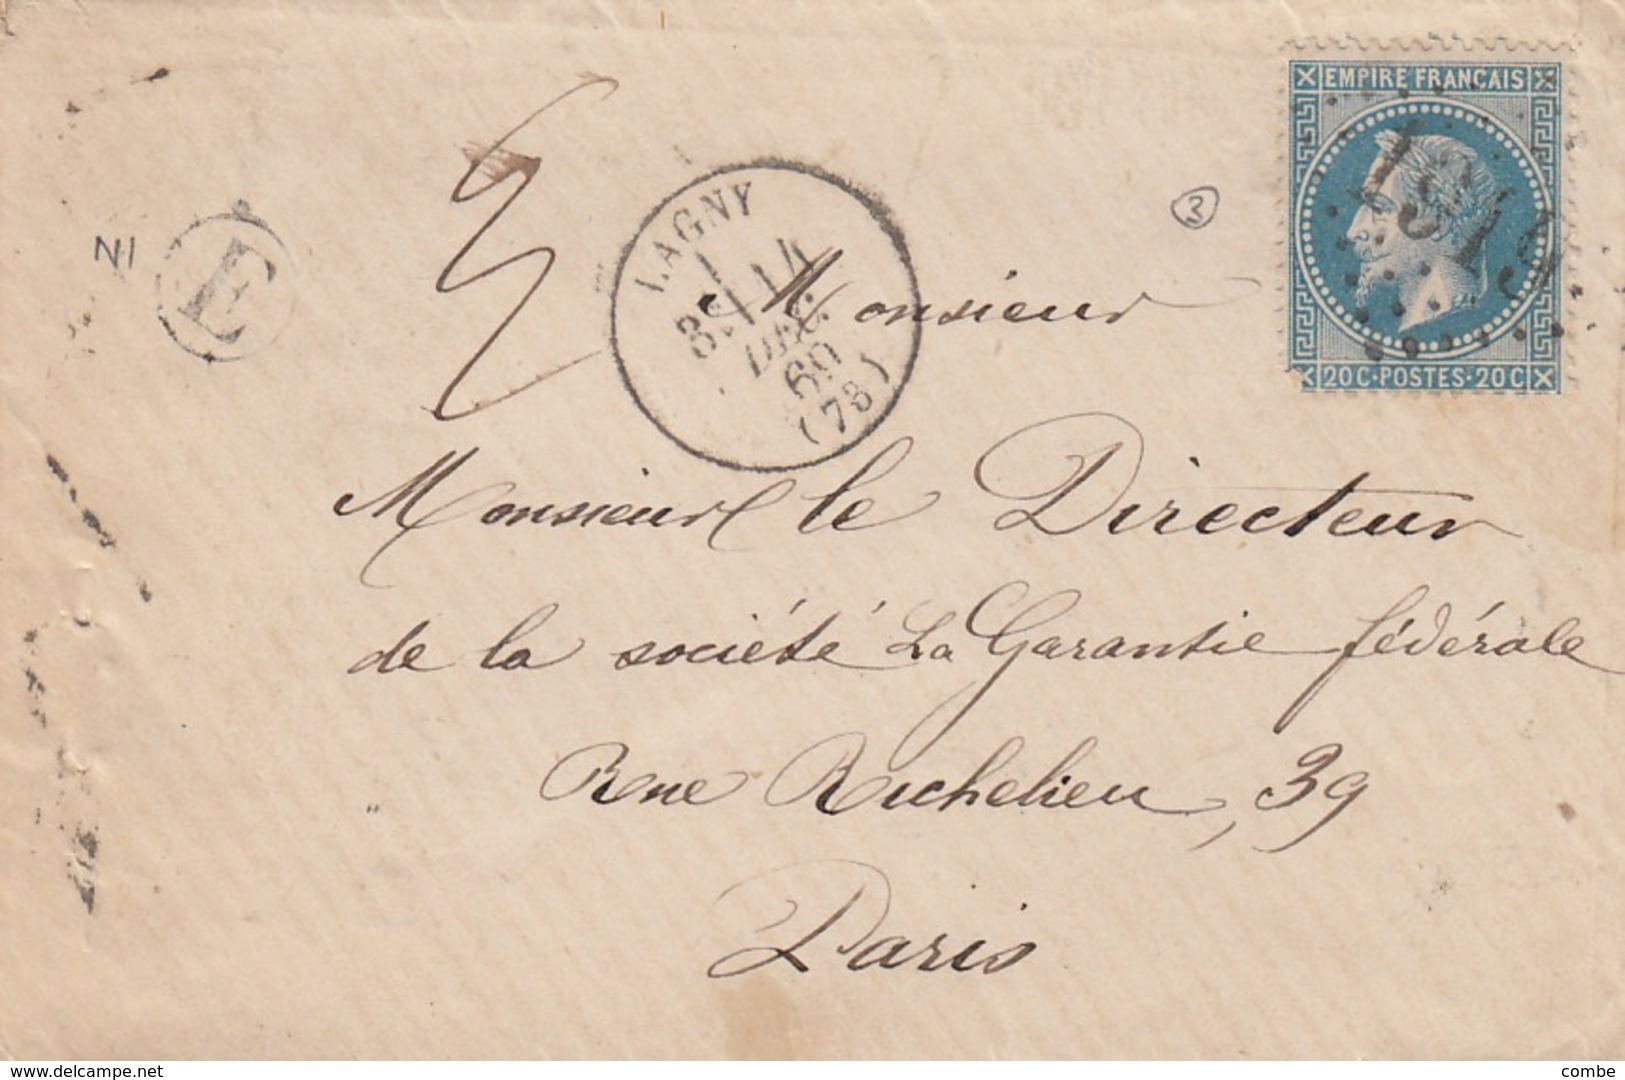 EMPIRE FRANÇAIS
1819
20C·POSTES·20C
3
NI
E
LAGNY
14
DEC.
69
(78)
Monsieur
Monsieur le Directeur
de la société La Garantie fédérale
Rue Richelieu, 39
Paris
www.delcampe.net
combe